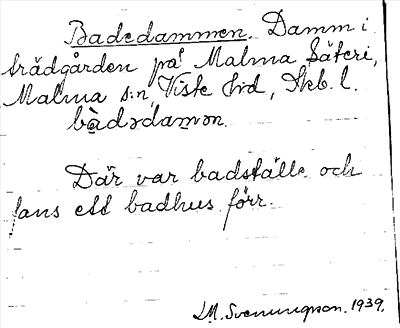 Badedammen. Damm i
trädgården på Malma Säteri,
Malma s:n, Viste hd, Skb. l.
bàdədamən.
Där var badställe och
fans ett badhus förr.
M. Svenungson. 1939.